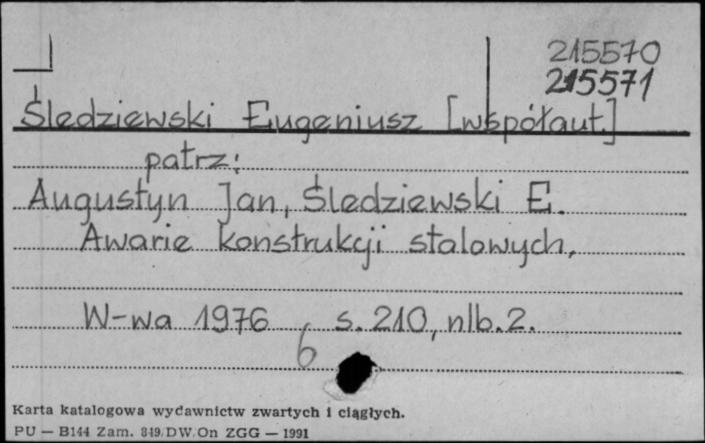 215570
215571
Śledziewski Eugeniusz [współaut.]
patrz:
Augustyn Jan, Śledziewski E.
Awarie konstrukcji stalowych,
W-wa 1976 s. 210, nlb. 2.
6
Karta katalogowa wydawnictw zwartych i ciągłych.
PU — B144 Zam. 849/DW/On ZGG — 1991